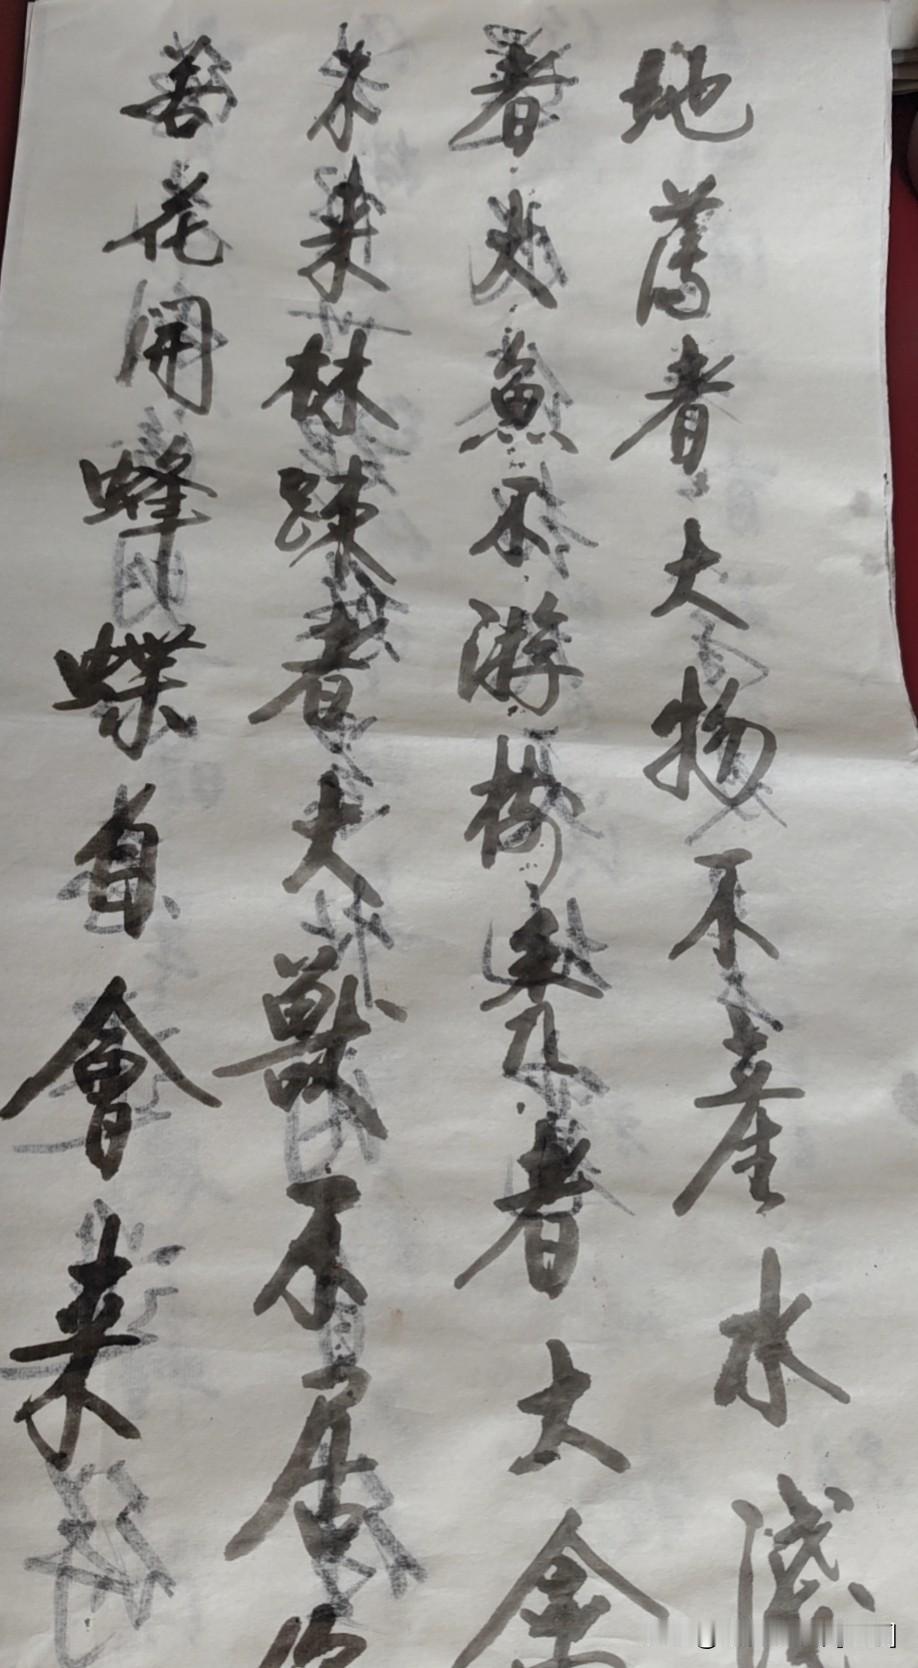 地薄者大物不產水淺
者大魚不游樹禿者大禽
未来林疎者大獸不居你
若花開蜂蝶自會来